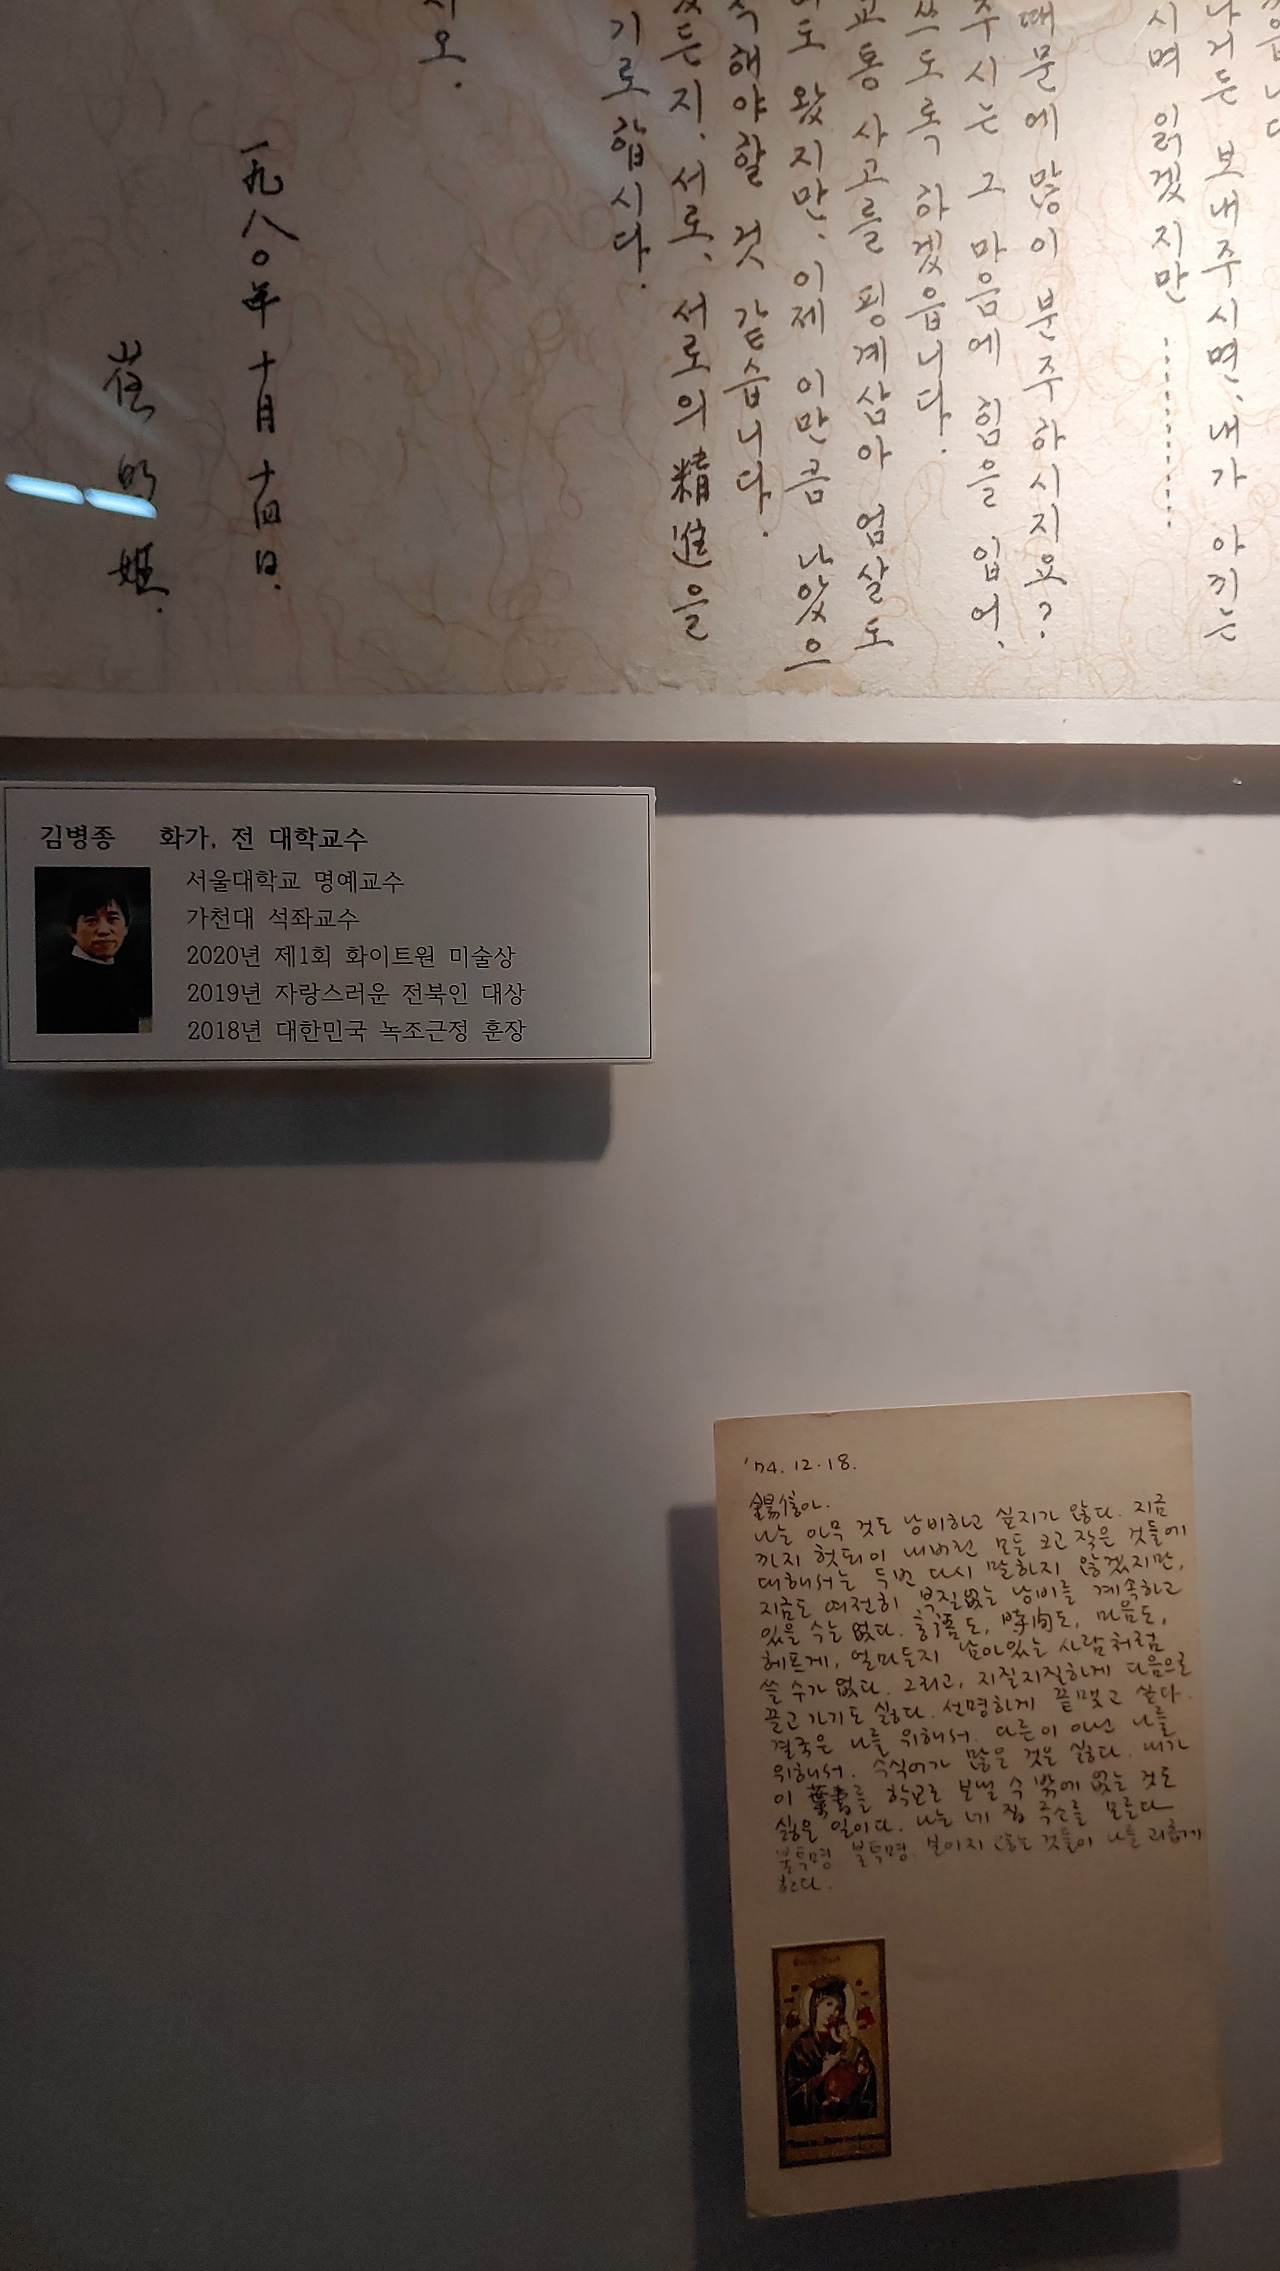 은 보내주시면, 내가 아끼는
시며 읽겠지만 ………
때문에 많이 분주하시지요?
주시는 그 마음에 힘을 입어,
쓰도록 하겠읍니다.
교통사고를 핑계삼아 엄살도
도 왔지만, 이제 이만큼 나았으
해야할 것 같습니다.
든지. 서로, 서로의 精進을
기로 합시다.
시오.
一九八〇年 十月 十四日.
崔明姬.
김병종 화가, 전 대학교수
서울대학교 명예교수
가천대 석좌교수
2020년 제1회 화이트원 미술상
2019년 자랑스러운 전북인 대상
2018년 대한민국 녹조근정 훈장
'74. 12. 18.
나는 아무 것도 낭비하고 싶지가 않다. 지금
까지 헛되이 내버린 모든 크고 작은 것들에
대해서는 두번 다시 말하지 않겠지만,
지금도 여전히 부질없는 낭비를 계속하고
있을 수는 없다. 言語도, 時間도, 마음도,
헤프게, 얼마든지 남아있는 사람처럼
쓸 수가 없다. 그리고, 지질지질하게 다음으로
끌고 가기도 싫다. 선명하게 끝맺고 싶다.
결국은 나를 위해서. 다른이 아닌 나를
위해서. 수식어가 많은 것은 싫다. 내가
이 葉書를 학교로 보낼 수 밖에 없는 것도
싫은 일이다. 나는 네 집 주소를 모른다.
불투명 불투명. 보이지 않는 것들이 나를 괴롭게
한다.